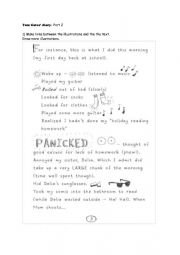 Tom Gates' diary. Part 2
1) Make links between the illustrations and the the text.
Draw more illustrations.
For instance, this is what I did this morning
(my first day back at school).
Woke up - listened to music
Played my guitar
Rolled out of bed (slowly)
Looked for socks
Looked for clothes
Played some more guitar
Realised I hadn't done my "holiday reading
homework"
PANICKED - thought of
good excuse for lack of homework (phew!).
Annoyed my sister, Delia. Which I admit did
take up a very LARGE chunk of the morning
(time well spent though).
Hid Delia's sunglasses.
Took my comic into the bathroom to read
(while Delia waited outside - Ha! Ha!). When
Mum shouts...
3